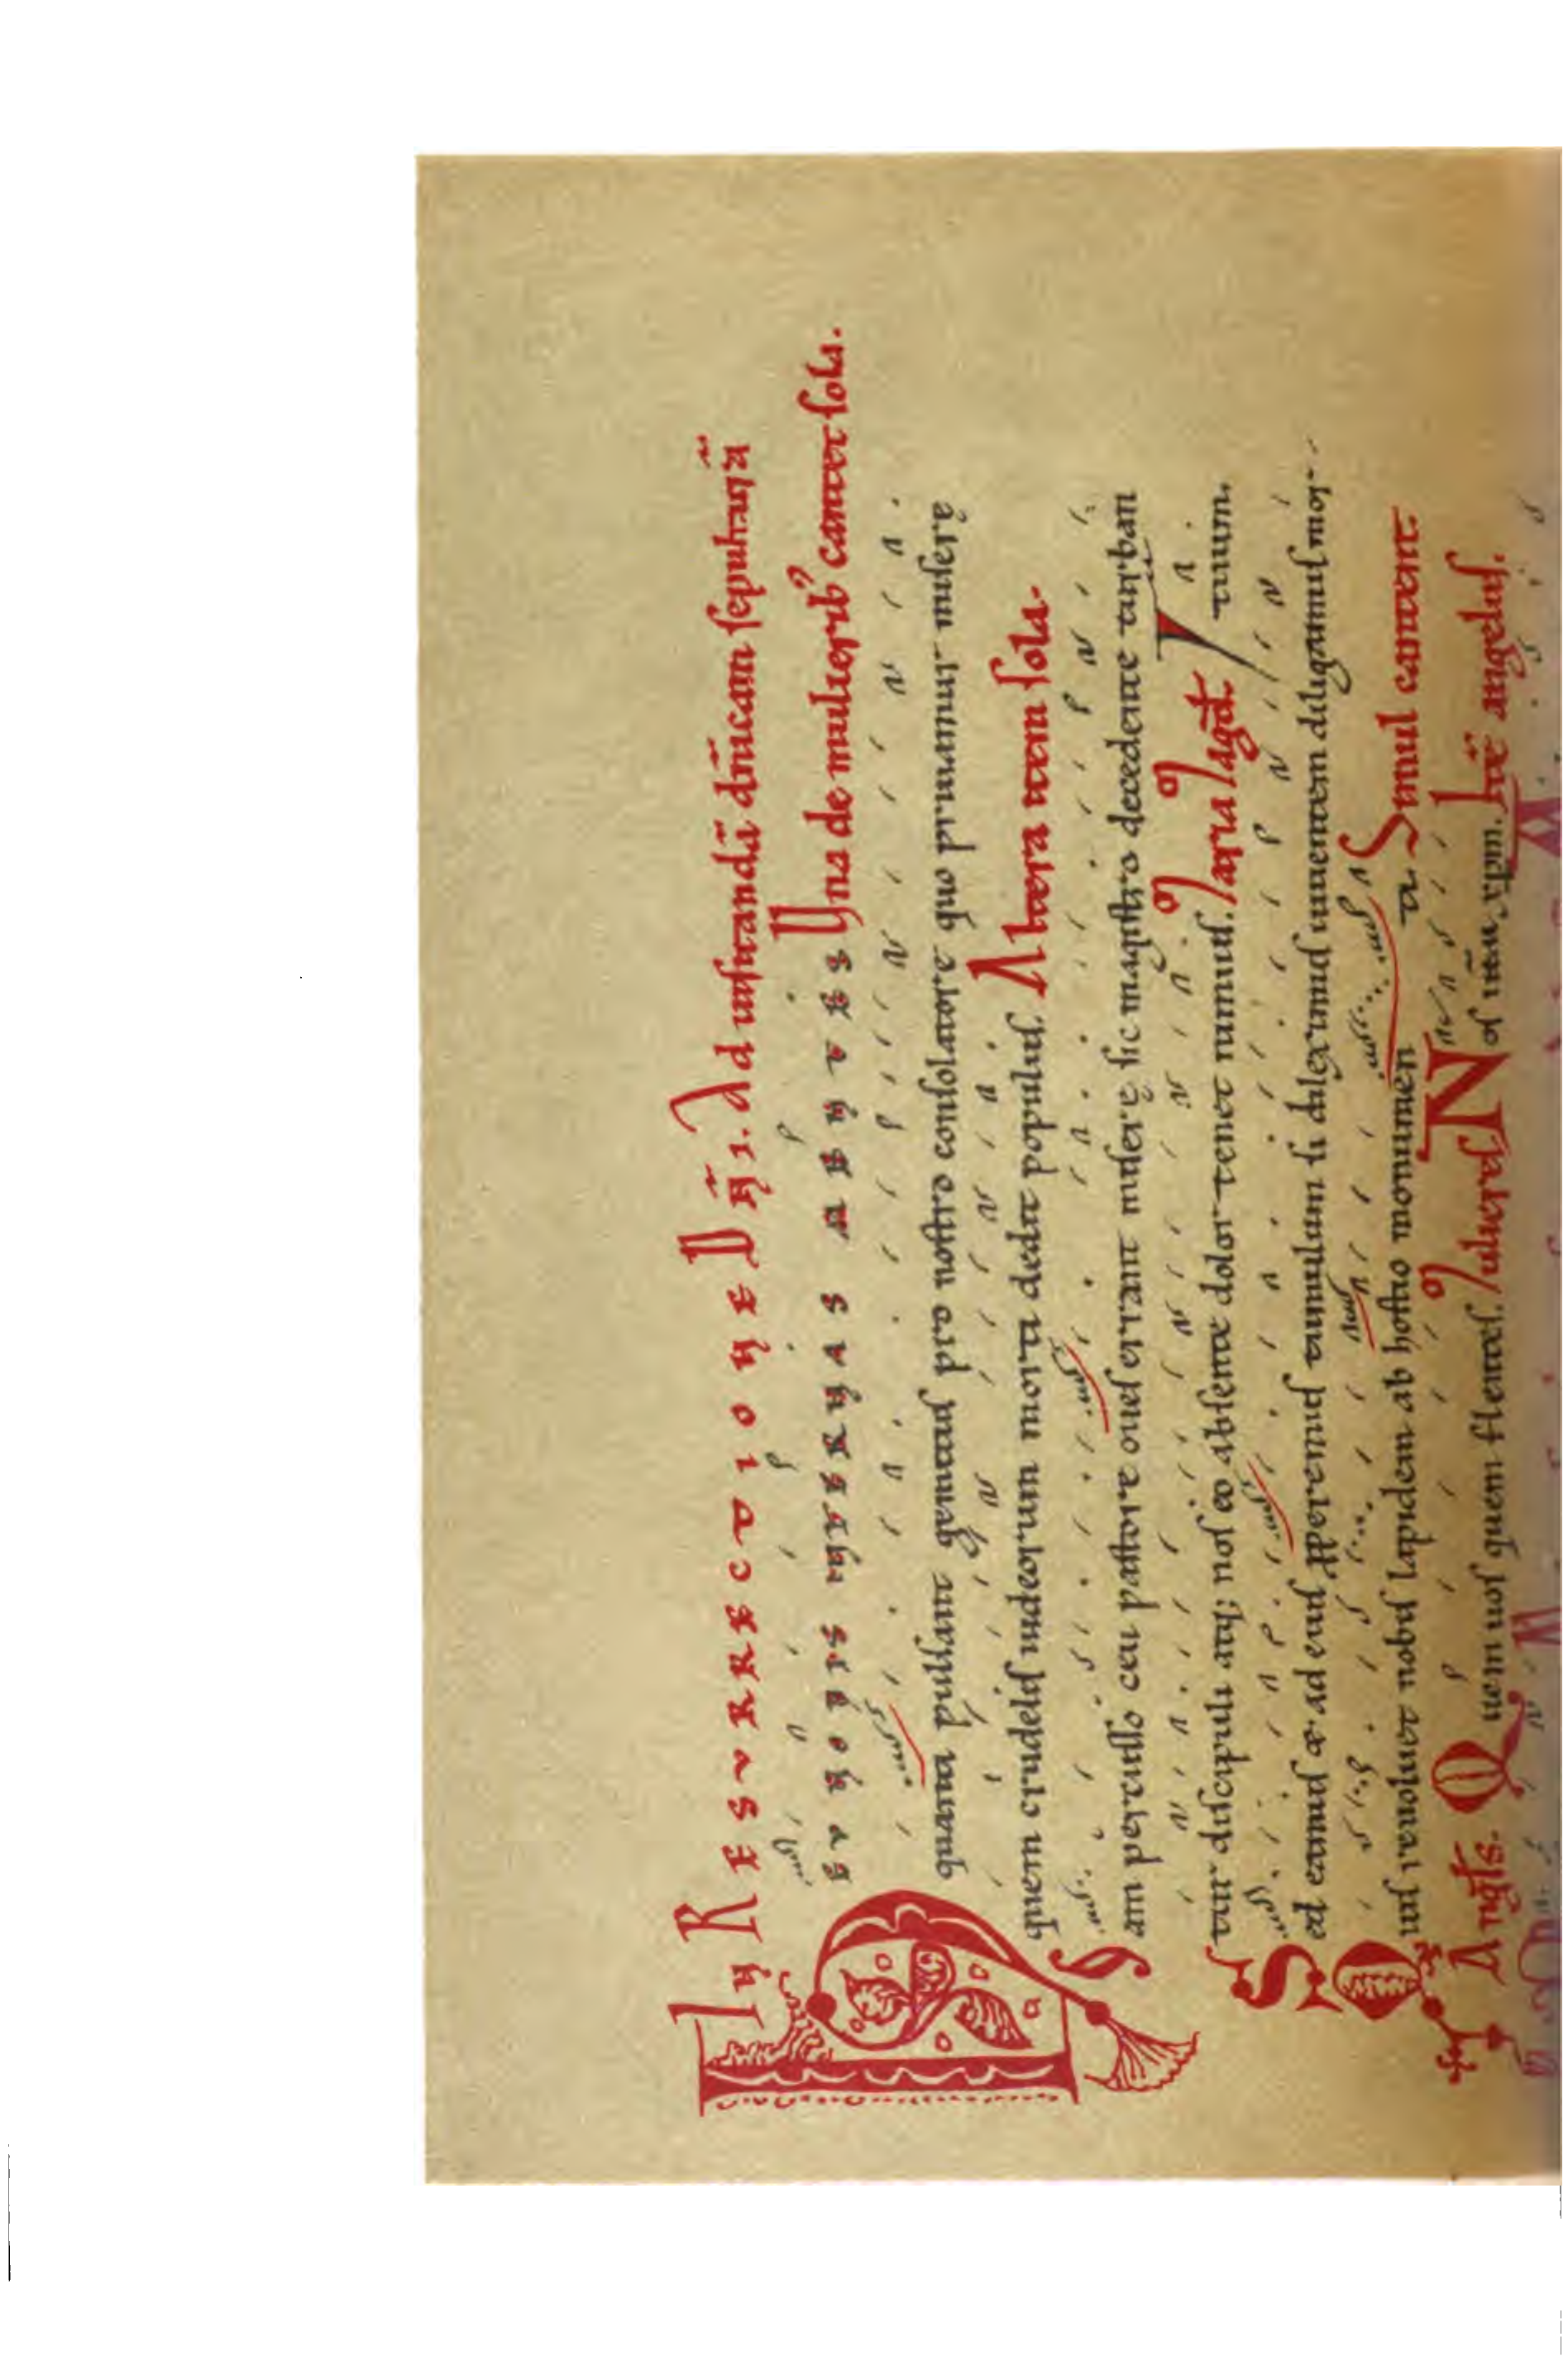 IN RESVRRECTIONE DÑI. Ad uisitandā dñicam sepulturā
HEV NOBIS INTERNAS MENTES Vna de mulierib' cantat sola.
quanti pulsant gemitus pro nostro consolatore quo priuamur misere
quem crudelis iudeorum morti dedit populus. Altera item sola.
Iam percusso ceu pastore oues errant misere sic magistro decedente turban
tur discipuli atq; nos eo absente dolor tenet nimius. Tertia tuum.
Sed eamus et ad eius properemus tumulum si dileximus uiuentem diligamus mor-
Quis reuoluet nobis lapidem ab hostio monumen ti Simul cantent
Angls. Quem uos quem flentes. Mulieres Nos ihm xpm. Itē angelus.